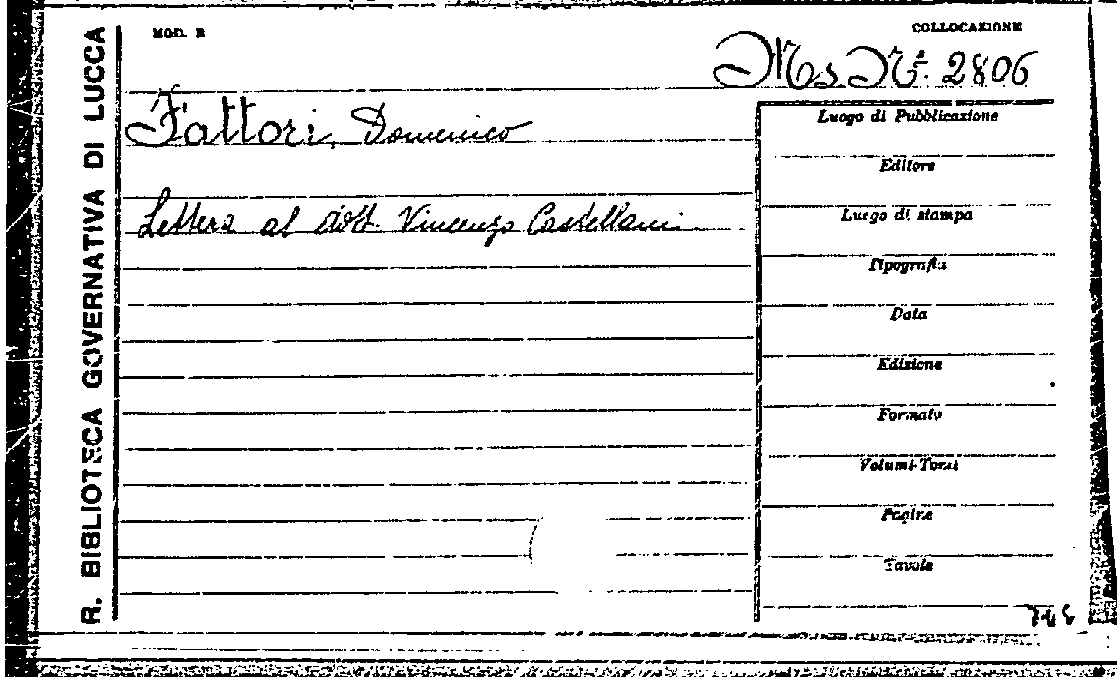 R. BIBLIOTECA GOVERNATIVA DI LUCCA
MOD. R
COLLOCAZIONE
Ms N.º 2806
Fattori, Domenico
Lettera al dott. Vincenzo Castellani
Luogo di Pubblicazione
Editore
Luogo di stampa
Tipografia
Data
Edizione
Formato
Volumi-Tomi
Pagine
Tavole